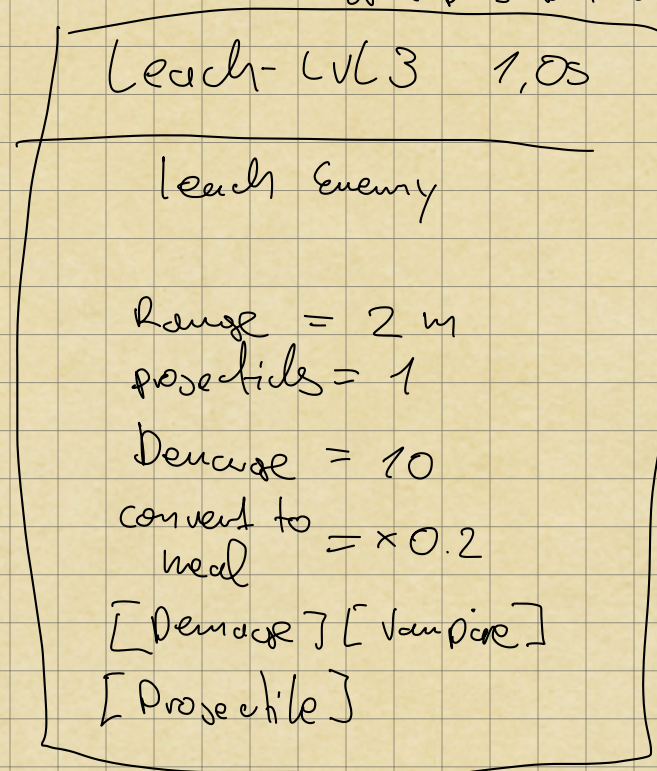 Leach- LVL 3 1,0s
Leach Enemy
Range = 2 m
projectids = 1
Demage = 10
convert to = ×0.2
heal
[Demage] [Vampire]
[Projectile]